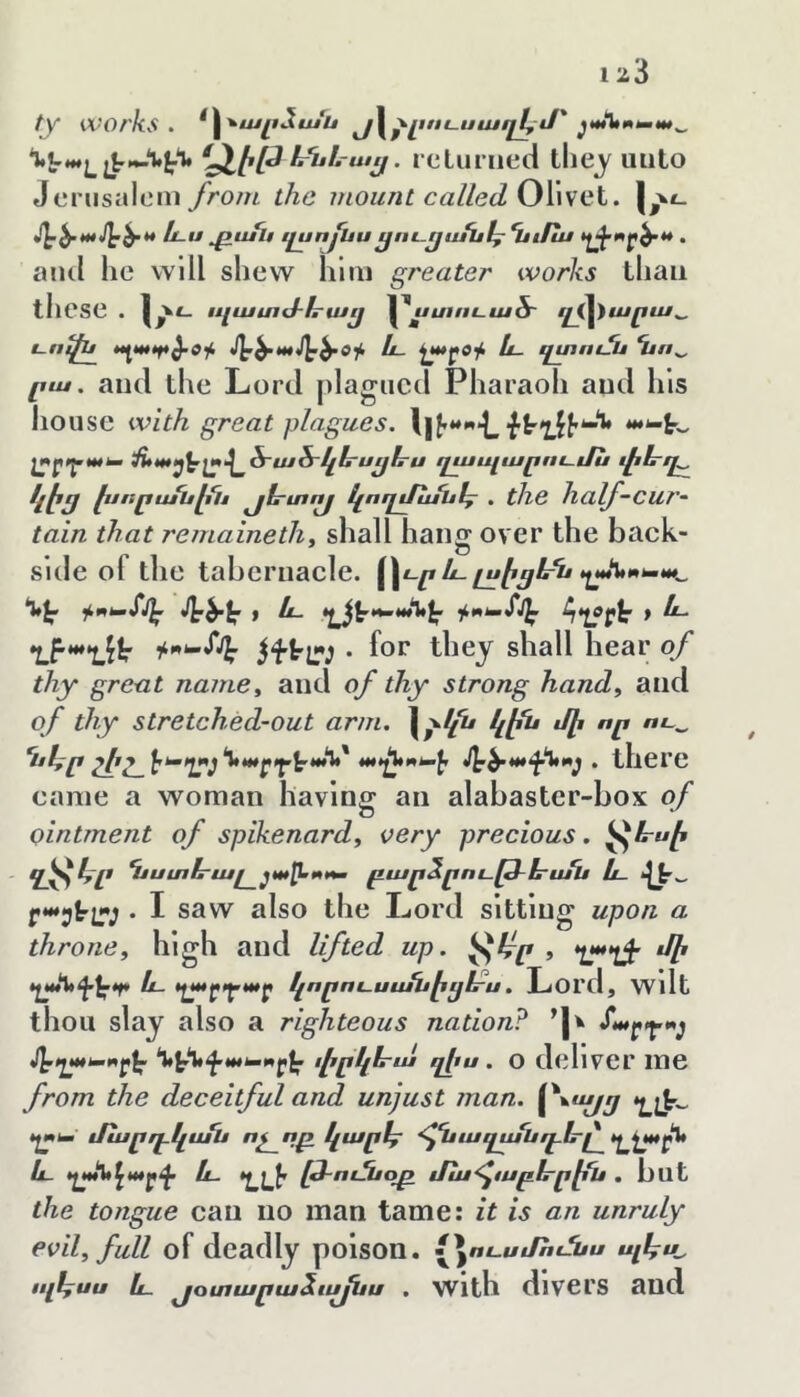 123
ty works. Դարձան յԵրուսաղէմ յանուա֊
նեալ լեռնէն Ձիթենեաց. returned they unto
Jerusalem from the mount called Olivet. Եւ
մեծամեծս ևս քան զսոյնս ցուցանէ նմա գործս.
and he will shew him greater works than
these. Եւ պատժեաց Աստուած զՓարա֊
ւովն պատժօք մեծամեծօք և չարօք և զտուն նո֊
րա. and the Lord plagued Pharaoh and his
house with great plagues. Կիսով փեղկին աւե֊
լորդաւ մնացելով ծածկեսցես զապարումն փեղ֊
կից խորանին յետոյ կողմանէ. the half-cur-
tain that remaineth, shall hang over the back-
side of the tabernacle. Ուր և լսիցեն զանուա֊
նէ քումմէ մեծէ, և զձեռանէ քումմէ հզօրէ, և
զբազկէ քումմէ ձգելոյ. for they shall hear of
thy great name, and of thy strong hand, and
of thy stretched-out arm. Եկն կին մի որ ու֊
նէր շիշ իւղոյ նարդեան՝ ազնուի մեծագնոյ. there
came a woman having an alabaster-box of
ointment of spikenard, very precious. Տեսի
զՏէր նստեալ յաթոռ բարձրութեան և վե֊
րացելոյ. I saw also the Lord sitting upon a
throne, high and lifted up. Տէր, զազգ մի
զանգէտ և զարդար կորուսանիցես. Lord, wilt
thou slay also a righteous nation? Ի մարդոյ
մեղաւորէ նենգաւորէ փրկեա զիս. o deliver me
from the deceitful and unjust man. Բայց զլե֊
զու մարդկան ոչ ոք կարէ հնազանդել զչարն
և զանկարգ և զլի թունօք մահաբերին. but
the tongue can no man tame: it is an unruly
evil, full of deadly poison. Յուսմունս պէս֊
պէսս և յօտարաձայնս. with divers and